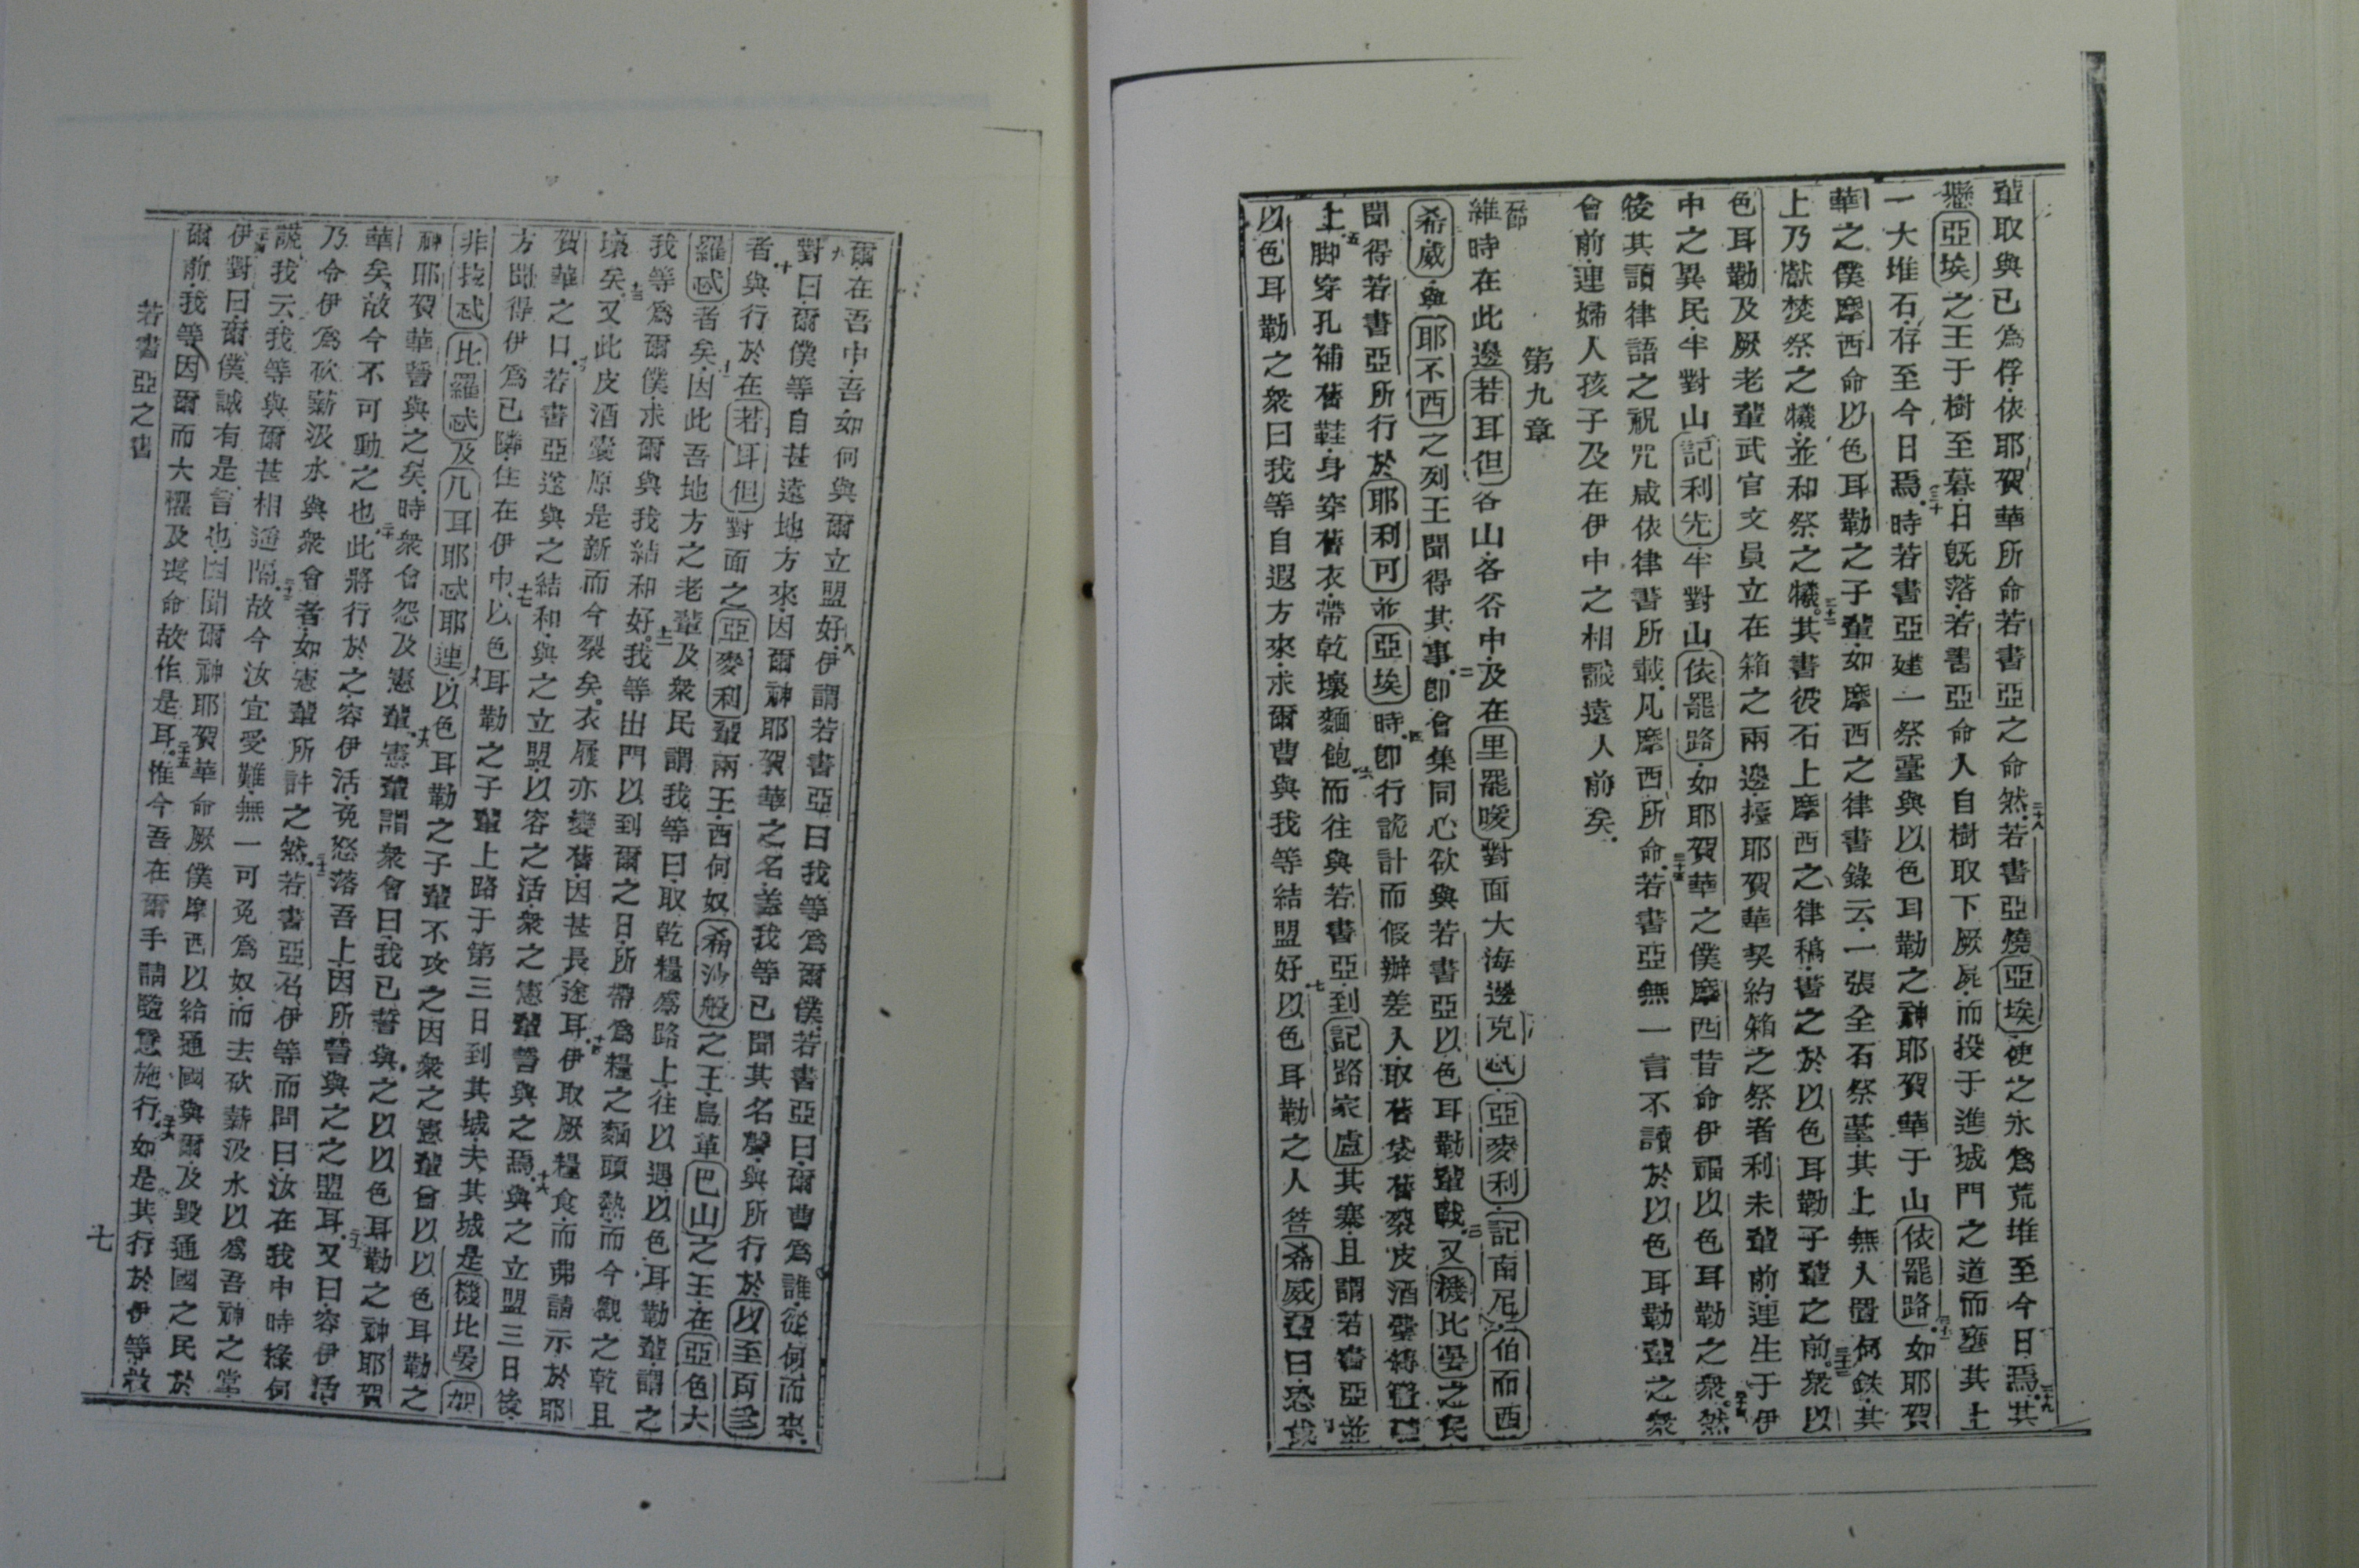 輩取與已爲俘依耶賀華所命若書亞之命然二十八若書亞燒亞埃使之永爲荒堆至今日焉二十九其
懸亞埃之王于樹至暮日旣落若書亞命人自樹取下厥屍而投于進城門之道而壅其上
一大堆石存至今日焉三十時若書亞建一祭臺與以色耳勒之神耶賀華于山依罷路三十一如耶賀
華之僕摩西命以色耳勒之子輩如摩西之律書錄云一張全石祭臺其上無人置何鉄其
上乃獻焚祭之犧並和祭之犧三十二其書彼石上摩西之律稿書之於以色耳勒子輩之前三十三衆以
色耳勒及厥老輩武官文員立在箱之兩邊擡耶賀華契約箱之祭者利未輩前連生于伊
中之異民半對山記利先半對山依罷路如耶賀華之僕摩西昔命伊福以色耳勒之衆三十四然
後其讀律語之祝咒咸依律書所載凡摩西所命三十五若書亞無一言不讀於以色耳勒輩之衆
會前連婦人孩子及在伊中之相識遠人前矣
第九章
維時在此邊若耳但各山各谷中及在里罷唆對面大海邊克忒亞麥利記南尼伯而西
希威與耶不西之列王聞得其事二卽會集同心欲與若書亞以色耳勒輩戰三又機比晏之民
聞得若書亞所行於耶利可並亞埃時四卽行詭計而假辦差人取舊袋舊裂皮酒
土五脚穿孔補舊鞋身穿舊衣帶乾壞麵飽六而往與若書亞到記路家盧其寨且謂若書亞並
以色耳勒之衆曰我等自遐方來求爾曹與我等結盟好七以色耳勒之人答希威輩曰恐或
爾在吾中吾如何與爾立盟好八伊謂若書亞曰我等爲爾僕若書亞曰爾曹爲誰從何而來
九對曰爾僕等自甚遠地方來因爾神耶賀華之名蓋我等已聞其名聲與所行於以至百
者十與行於在若耳但對面之亞麥利輩兩王西何奴希沙般之王烏革巴山之王在亞色大
羅忒者矣十一因此吾地方之老輩及衆民謂我等曰取乾糧爲路上往以遇以色耳勒輩謂之
我等爲爾僕求爾與我結和好十二我等出門以到爾之日所帶爲糧之麵頭熱而今觀之乾且
壞矣十三又此皮酒囊原是新而今裂矣衣履亦變舊因甚長途耳十四伊取厥糧食而弗請示於耶
賀華之口十五若書亞遂與之結和與之立盟以容之活衆之憲輩誓與之焉十六與之立盟三日後
方聞得伊爲已隣住在伊中十七以色耳勒之子輩上路于第三日到其城夫其城是機比晏加
非拉忒比羅忒及几耳耶忒耶連十八以色耳勒之子輩不攻之因衆之憲輩曾以以色耳勒之
神耶賀華誓與之矣時衆會怨及憲輩十九憲輩謂衆會曰我已誓與之以以色耳勒之神耶賀
華矣故今不可動之也二十此將行於之容伊活免怒落吾上因所誓與之之盟耳二十一又曰容伊活
乃令伊爲砍薪汲水與衆會者如憲輩所許之然二十二若書亞召伊等而問曰汝在我中時緣何
謊我云我等與爾甚相遠隔二十三故今汝宜受難無一可免爲奴而去砍薪汲水以爲吾神之堂
二十四伊對曰爾僕誠有是言也因聞爾神耶賀華命厥僕摩西以給通國與爾及毀通國之民於
爾前我等因爾而大懼及喪命故作是耳二十五惟今吾在爾手請隨意施行二十六如是其行於伊等救
若書亞之書
七